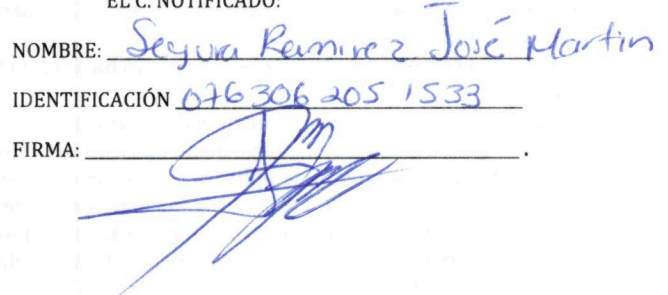 EL C. NOTIFICADO:
NOMBRE: Segura Ramirez José Martin
IDENTIFICACIÓN 076306 205 1533
FIRMA: